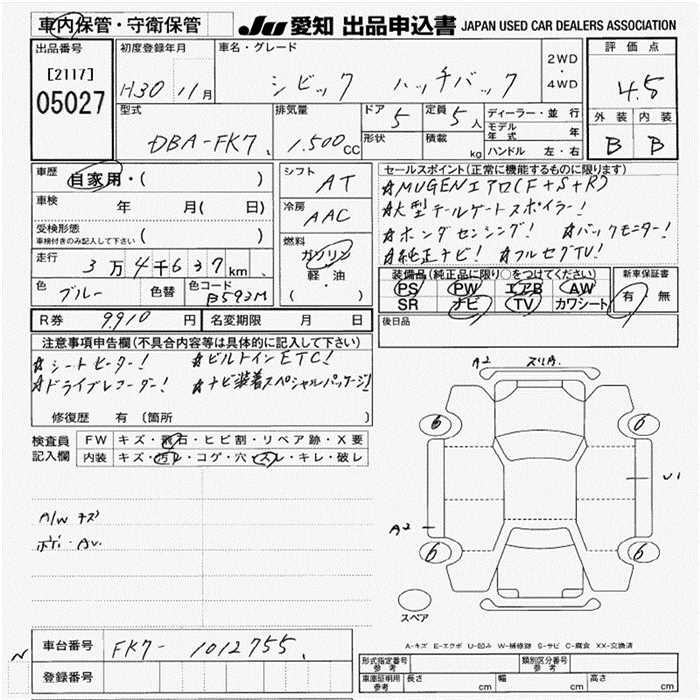 車内保管・守衛保管
JU 愛知 出品申込書 JAPAN USED CAR DEALERS ASSOCIATION
出品番号 [2117] 05027
初度登録年月 H30 11月
車名・グレード シビック ハッチバック
2WD・4WD
評価点 4.5
外装 B 内装 B
型式 DBA-FK7
排気量 1.500CC
ドア 5 定員 5人
形状 積載 kg
ディーラー・並行
モデル年式 年
ハンドル 左・右
車歴 自家用・( )
車検 年 月( 日)
受検形態 ( )
車検付きのみ記入して下さい
走行 3万4千637km
色 ブルー 色替 色コード B593M
R券 9,910円 名変期限 月 日
シフト AT
冷房 AAC
燃料 ガソリン
軽・油
( )
セールスポイント(正常に機能するものに限ります)
☆MUGENエアロ(F+S+R)
☆大型テールゲートスポイラー!
☆ホンダセンシング! ☆バックモニター!
☆純正ナビ! ☆フルセグTV!
装備品(純正品に限り○をつけてください)
PS PW エアB AW
SR ナビ TV カワシート
新車保証書
有・無
後日品
注意事項申告欄(不具合内容等は具体的に記入して下さい)
☆シートヒーター! ☆ビルトインETC!
☆ドライブレコーダー! ☆ナビ装着スペシャルパッケージ!
修復歴 有 (箇所 )
検査員記入欄
FW キズ・飛石・ヒビ割・リペア跡・X要
内装 キズ・汚レ・コゲ・穴・スレ・キレ・破レ
A/W キズ
A2 スリ有.
6 6
U1
A2
6 6
スペア
A-キズ E-エクボ U-凹み W-補修跡 S-サビ C-腐食 XX-交換済
車台番号 FK7-1012755
登録番号
形式指定番号 参考 類別区分番号 参考
車庫証明用 参考 長さ cm 幅 cm 高さ cm